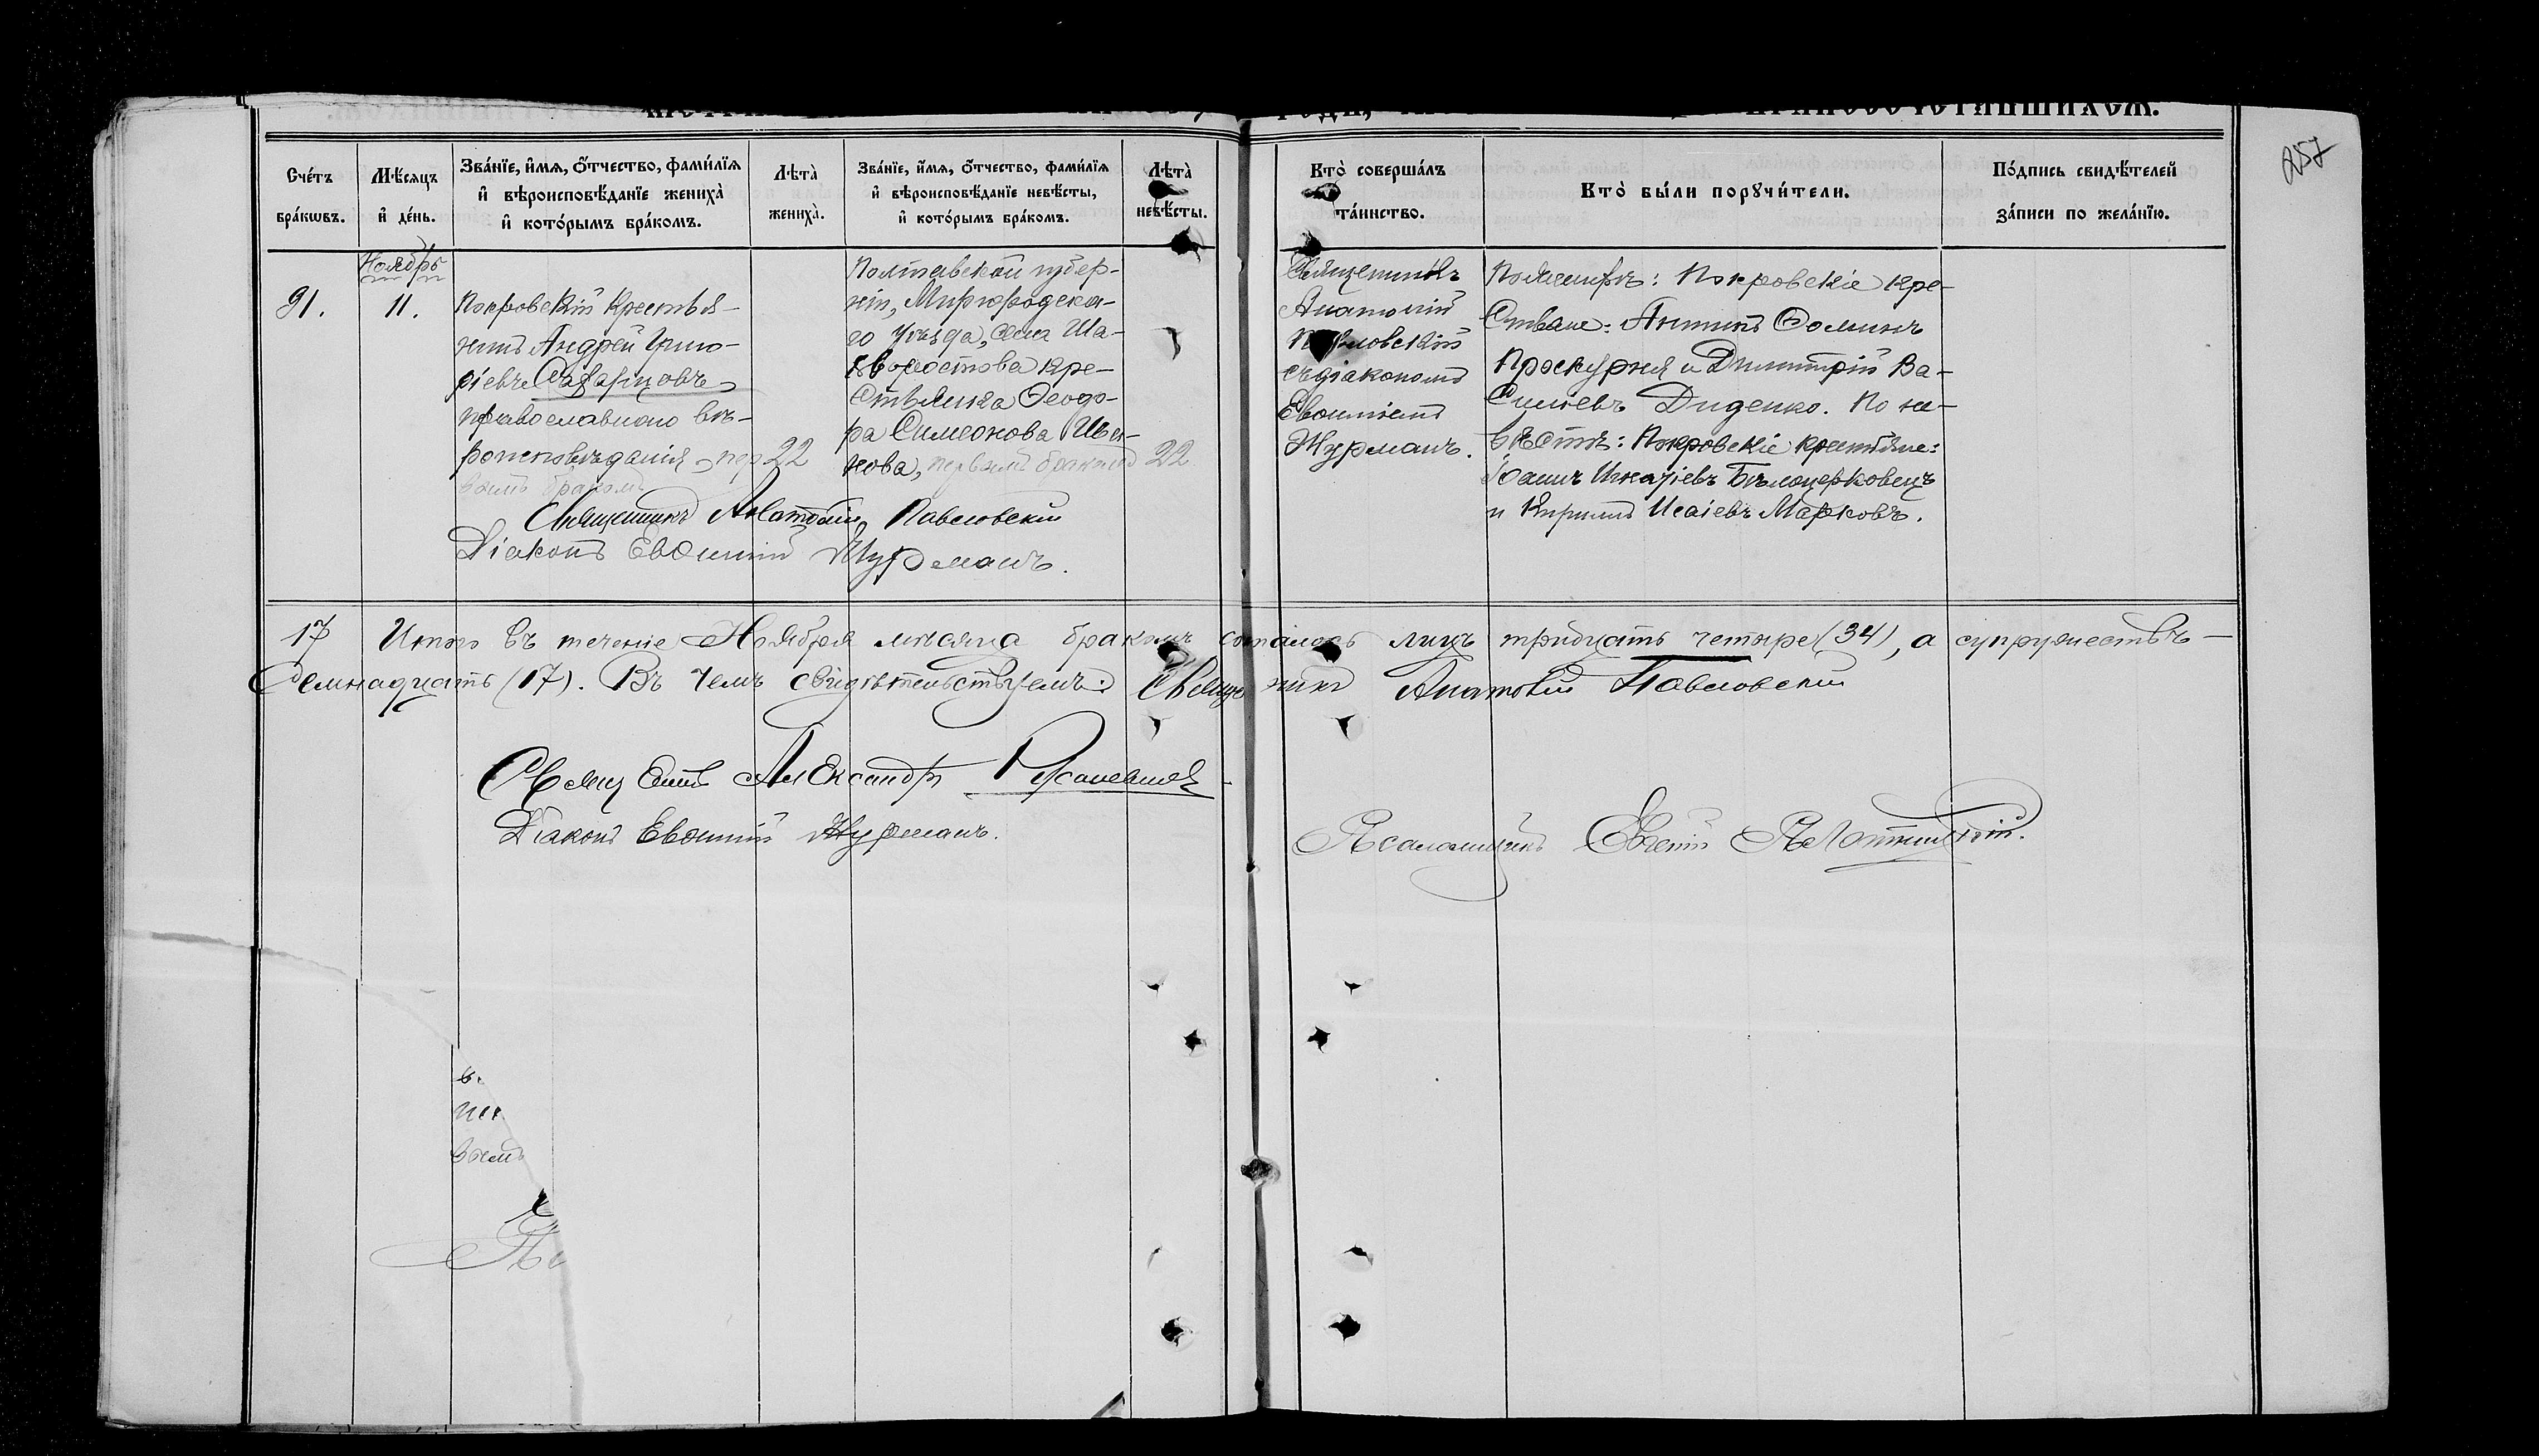 БРАКОСОЧЕТАВШИХСѦ.
257
Сче́тъ бра́кѡвъ.
Мѣ́сяцъ и҆ де́нь.
Зва́нїе, и҆́мѧ, ѻ҆́тчество, фами́лїѧ
и҆ вѣроисповѣ́данїе жениха̀
и҆ кото́рымъ бра́комъ.
Лѣта̀ жениха̀.
Зва́нїе, и҆́мѧ, ѻ҆́тчество, фами́лїѧ
и҆ вѣроисповѣ́данїе невѣ́сты,
и҆ кото́рымъ бра́комъ.
Лѣта̀ невѣ́сты.
Кто̀ соверша́лъ
та́инство.
Кто̀ бы́ли порꙋчи́тели.
По́дпись свидѣ́телей
за́писи по жела́нїю.
91.
Ноябрь
11.
Покровскій крестья-
нинъ Андрей Григо-
ріевъ
православнаго вѣ-
роисповѣданія, пер
вымъ бракомъ
22
Полтавской губер-
ніи, Миргородска-
го уѣзда, села Ша-
хворостова кре-
стьянка Ѳеодо-
ра Симеонова Ива-
нова, первымъ бракомъ
22
Священникъ
Анатолій
Павловскій
съ діакономъ
Евѳиміемъ
Журманъ.
По женихѣ: Покровскіе кре-
стьяне: Антипъ Ѳоминъ
Проскурня и Димитрій Ва-
сильевъ Диденко. По не-
вѣстѣ: Покровскіе крестьяне:
Іоаннъ Игнатіевъ Бѣлоцерковецъ
и Кириллъ Исаіевъ Марковъ.
Священникъ Анатолій Павловскій
Діаконъ Евѳимій Журманъ.
17 Итого въ теченіе Ноября мѣсяца бракомъ сочталось лицъ тридцать четыре (34), а супружествъ —
семнадцать (17). Въ чемъ свидѣтельствуемъ: Священникъ Анатолій Павловскій
Священникъ Александръ
Діаконъ Евѳимій Журманъ.
Псаломщикъ Евгеній
вымъ